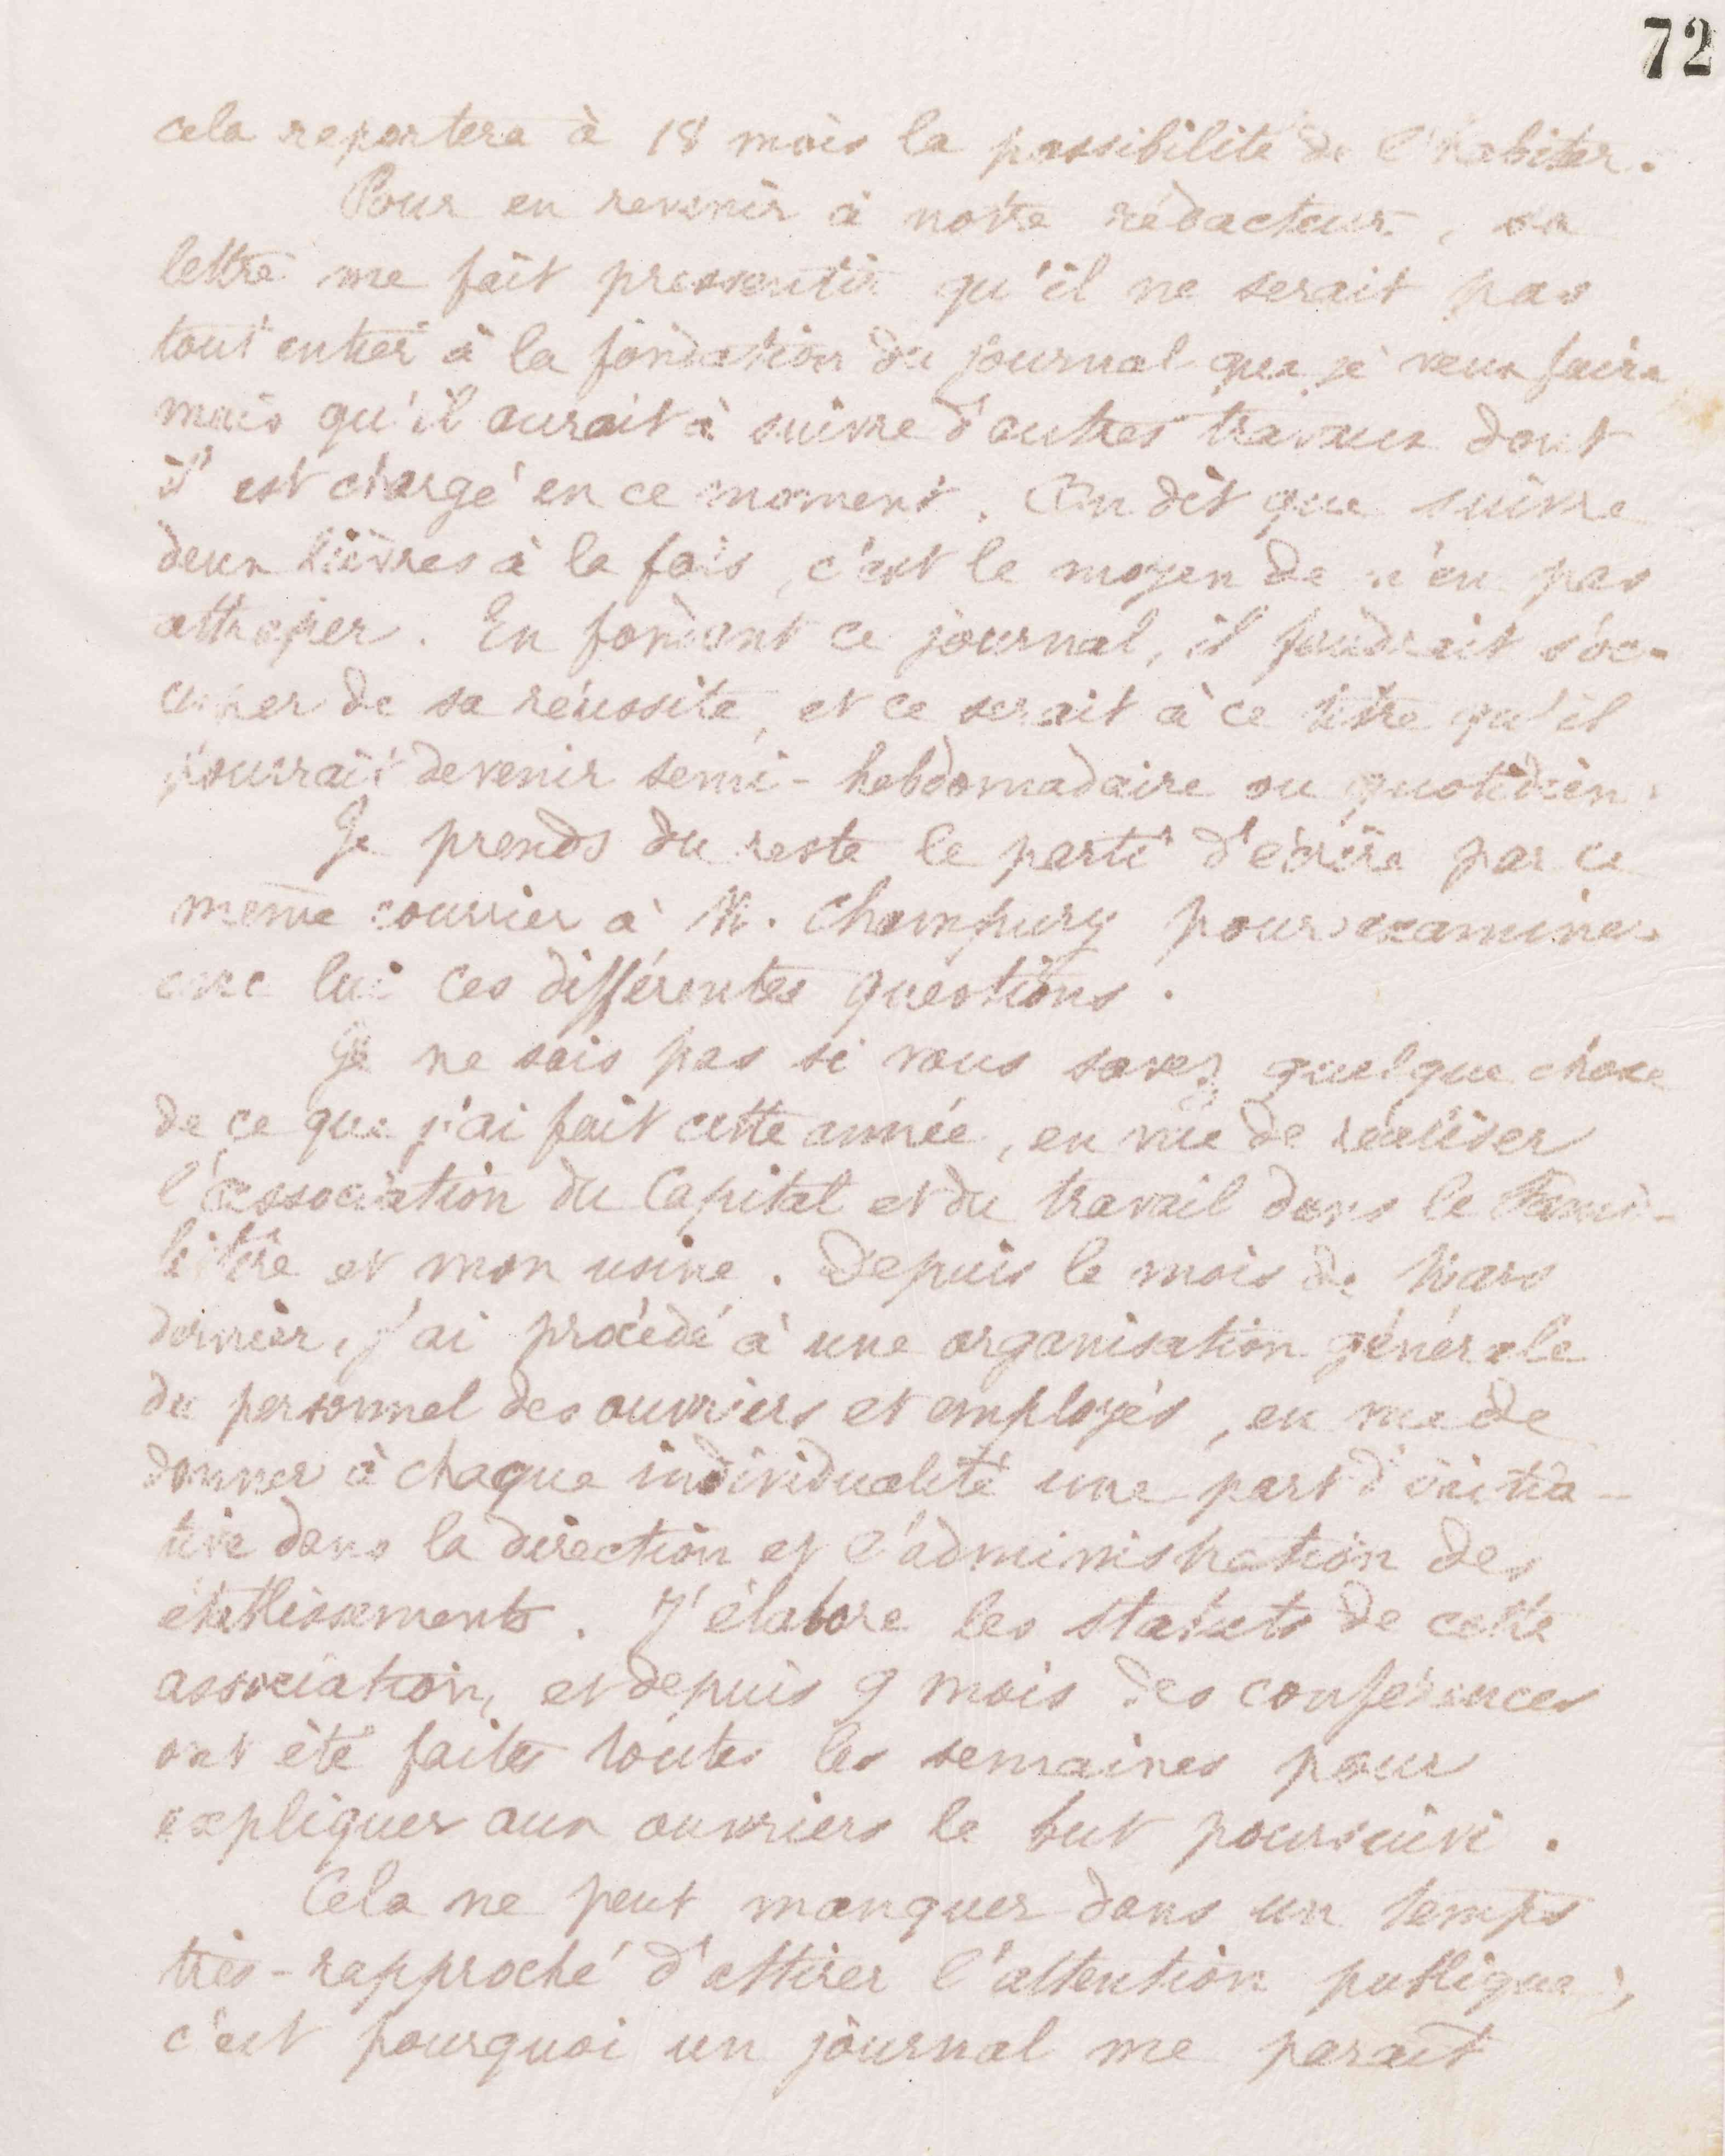 72
cela reportera à 18 mois la possibilité de l'habiter.
Pour en revenir à notre rédacteur, sa
lettre me fait pressentir qu'il ne serait pas
tout entier à la fondation du journal que je veux faire
mais qu'il aurait à suivre d'autres travaux dont
il est chargé en ce moment. On dit que suivre
deux lièvres à la fois, c'est le moyen de n'en pas
attraper. En fondant ce journal, il faudrait s'oc-
cuper de sa réussite, et ce serait à ce titre qu'il
pourrait devenir semi-hebdomadaire ou quotidien.
Je prends du reste le parti d'écrire par ce
même courrier à M. Champury pour examiner
avec lui ces différentes questions.
Je ne sais pas si vous savez quelque chose
de ce que j'ai fait cette année, en vue de réaliser
l'association du Capital et du travail dans le Fami-
listère et mon usine. Depuis le mois de Mars
dernier, j'ai procédé à une organisation générale
du personnel des ouvriers et employés, en vue de
donner à chaque individualité une part d'initia-
tive dans la direction et l'administration des
établissements. J'élabore les statuts de cette
association, et depuis 9 mois des conférences
ont été faites toutes les semaines pour
expliquer aux ouvriers le but poursuivi.
Cela ne peut manquer dans un temps
très-rapproché d'attirer l'attention publique,
c'est pourquoi un journal me parait